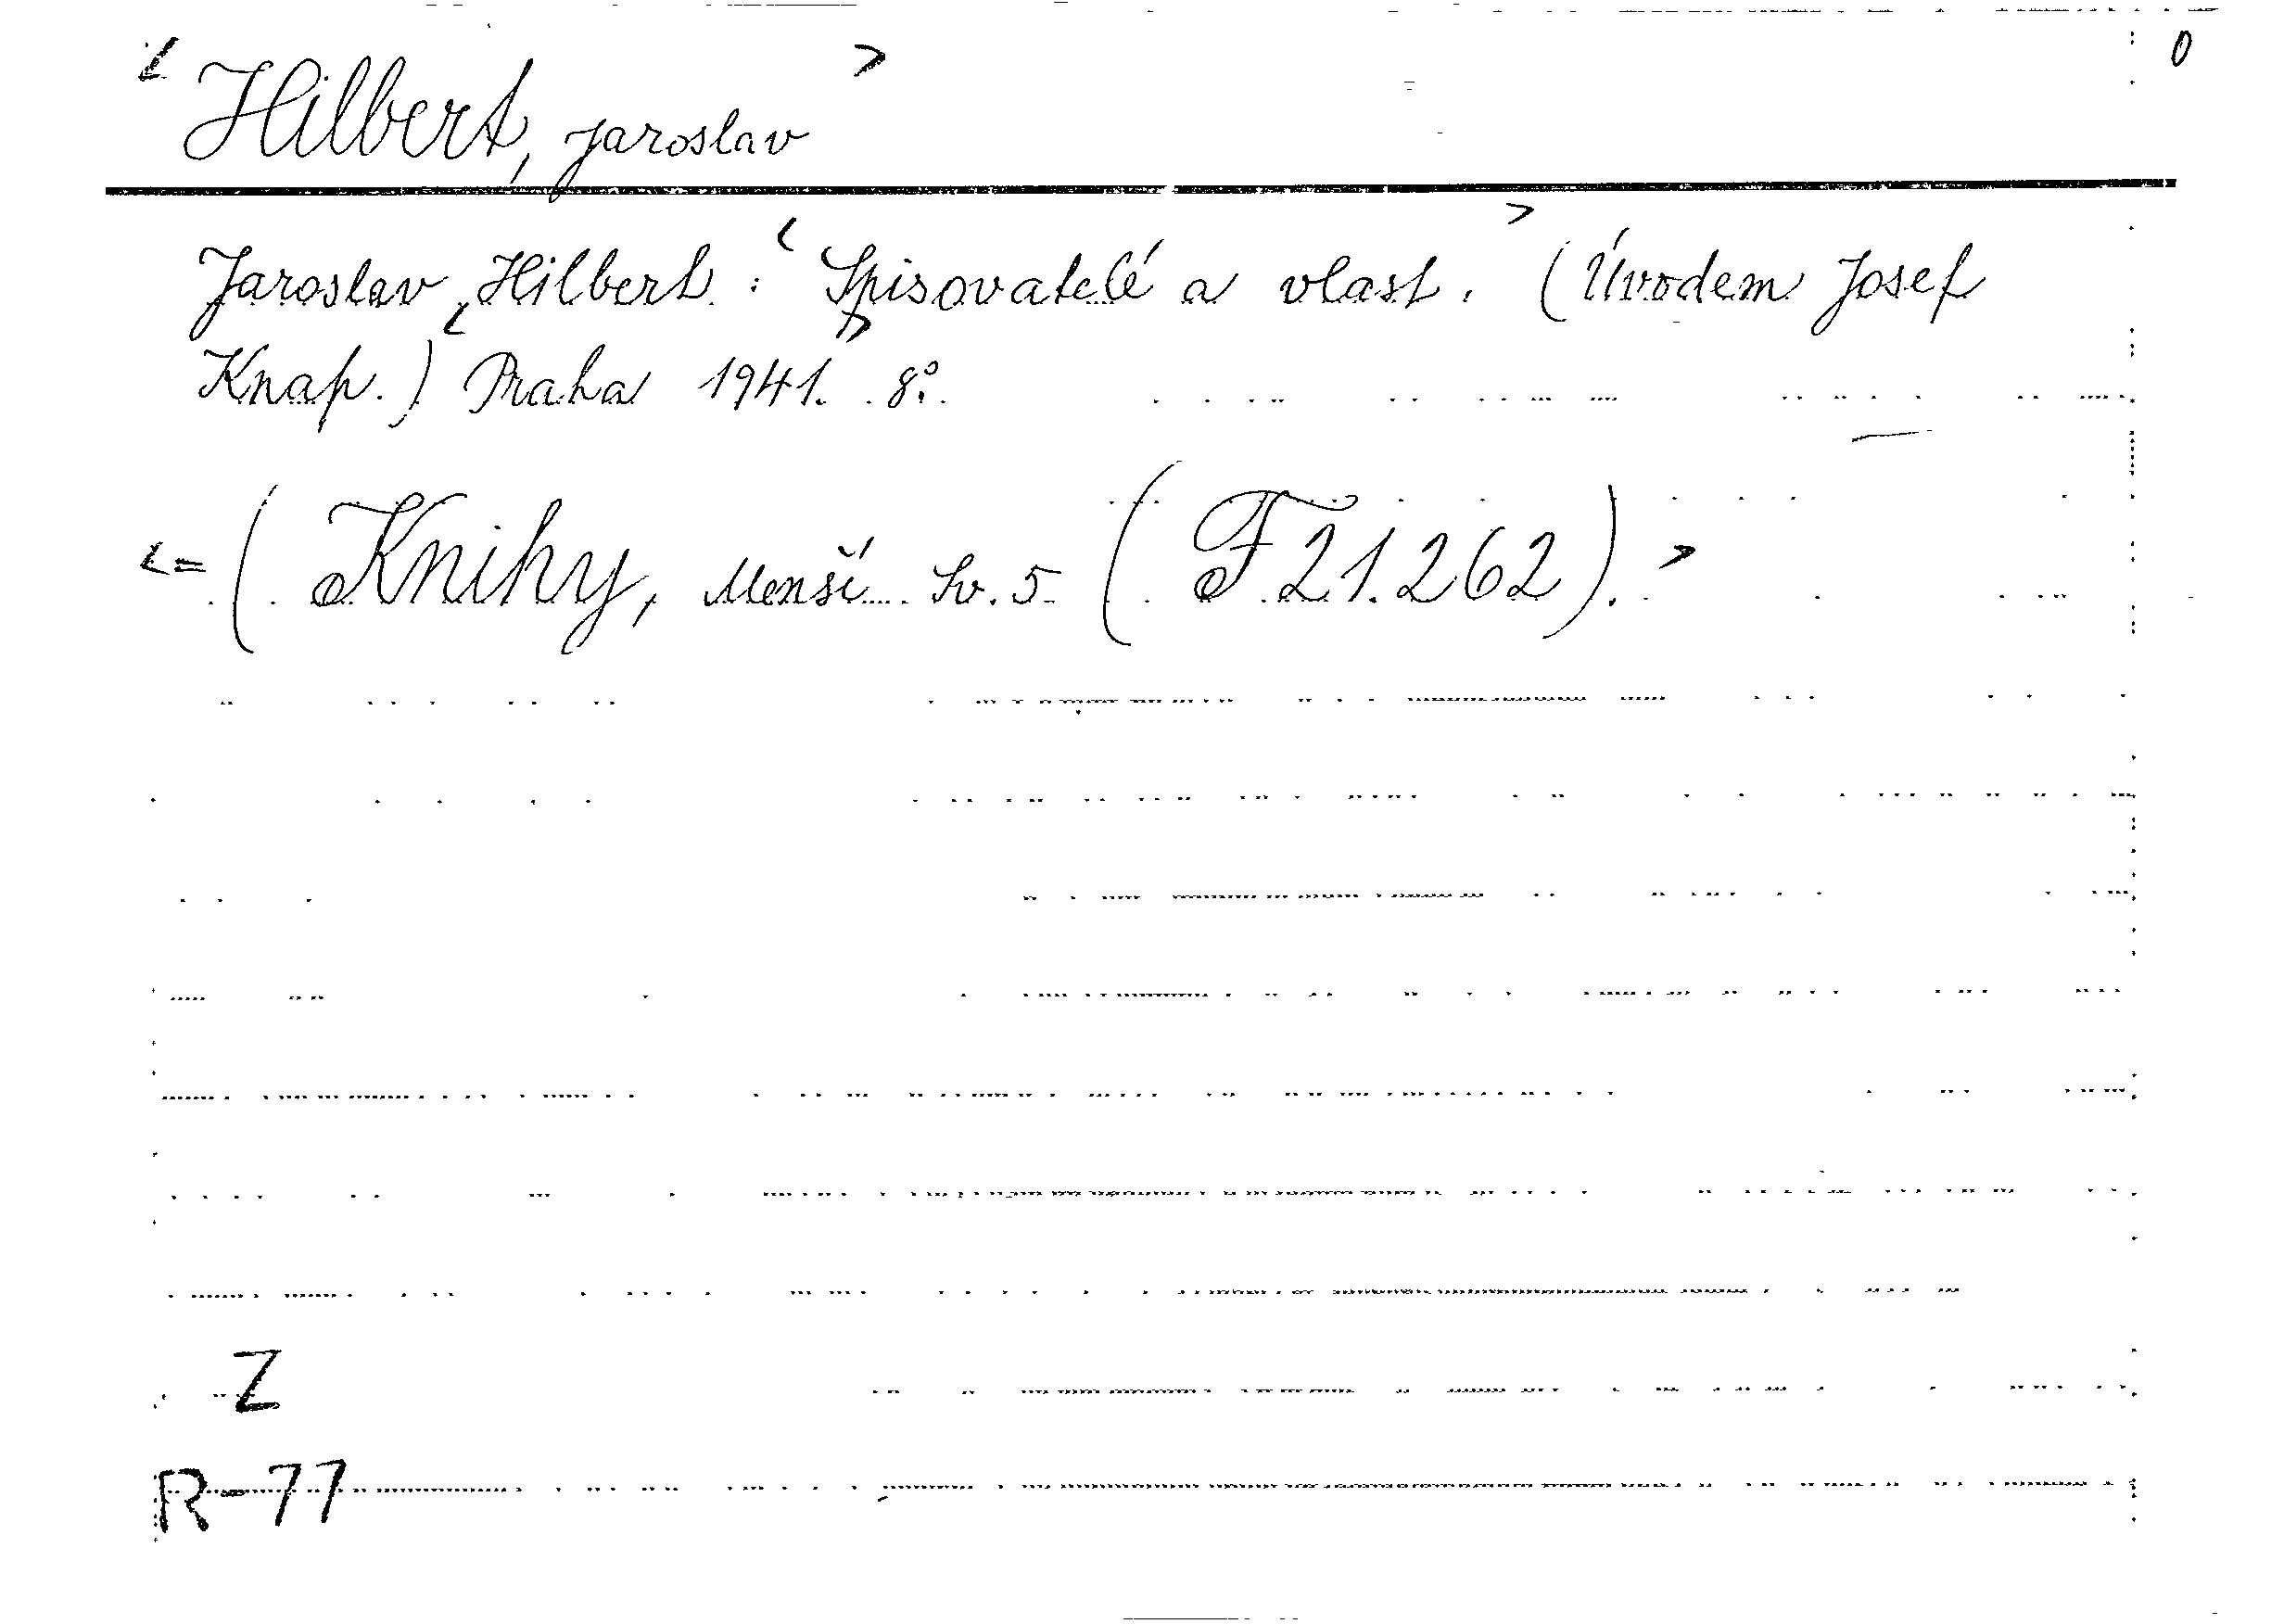 < Hilbert, Jaroslav > 0
Jaroslav <Hilbert> : <Spisovatelé a vlast.> (Úvodem Josef
Knap.) Praha 1941. 8°.
<= (Knihy, Menší.. Sv. 5 (F 21.262). >
Z
R-77